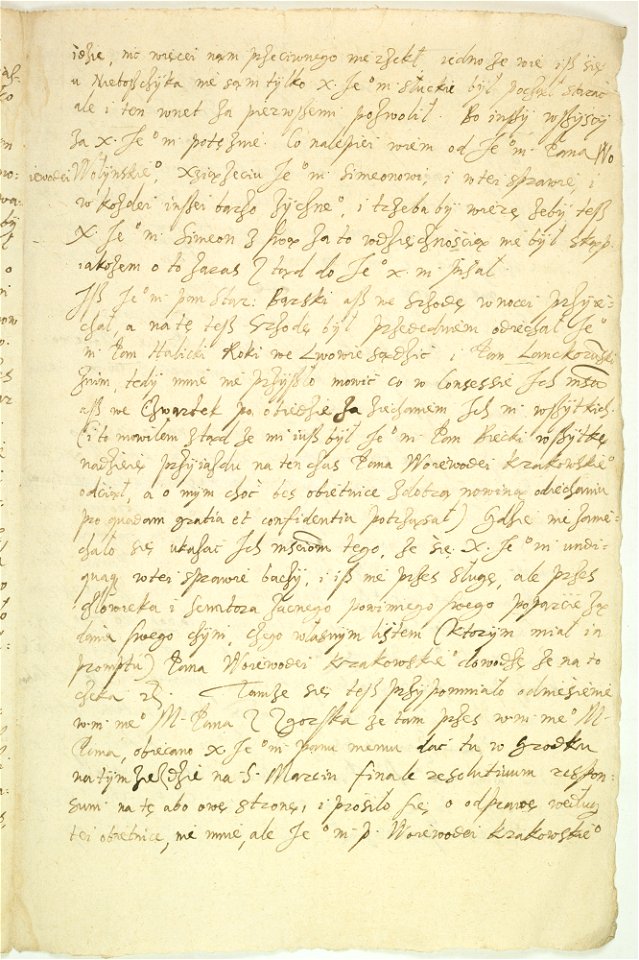 idzie, nic więcei nam przeciwnego nie rzekł, iedno że wie iż się
u nie są m tylko X. Je° m. słuckie był począł starać
ale i ten wnet za pierwszemi pozwolił. Bo inszy wszyscy
za X. Je° m. potężnie. Co nalepiei wiem od Je° m. Pana Wo
iewodei Wołyńskie°, xążęciu Je° m. Simeonowi, i w tei sprawie, i
w każdei inszei barzo życzne°, i trzeba by wierzę żeby tesz
X. Je° m. Simeon z swą za to wdzięcznością nie był skąp.
iakożem o to zaraz z tąd do Je° x. m. pisał.
Isz Je° m. pan Star: Barski asz we Srzodę w nocei przyie-
chał, a na tę tesz Srzodę był przededniem odiechał Je°
m. Pan Halicki Roki we Lwowie sądzić i Pan Lanckoroński
z nim, tedy mnie nie przyszło mowić co w Consessie Ich mści
asz we Czwartek po obiedzie za ziechaniem Ich m. wszytkich.
(i to mowiłem z tąd że mi iusz był Je° m. Pan Biecki wszytkę
nadzieię przyiazdu na ten czas Pana Woiewodei Krakowskie°
odciął, a o mym choć bes obietnice z dobrą nowiną odiechaniu
pro quadam gratia et confidentia potrząsał) Gdzie nie zanie-
chało się ukazać Ich mściom tego, że się X. Je° m. undi-
quaq w tei sprawie baczy, i isz nie przes sługę, ale przes
człowieka i Senatora zacnego powinnego swego poparcie żą
dania swego czyni, czego własnym listem (ktorym miał in
promptu) Pana Woiewodei Krakowskie° dowodzę że na to
czeka etc. Tamże się tesz przypomniało odniesienie
w. m. me° M. Pana z Zgorska że tam przes w. m. me° M.
Pana, obiecano X. Je° m. panu memu dać tu w Grodku
na tym zieździe na S. Marcin finale resolutiuum respon-
sum na tę abo owę stronę, i prosiło się o odprawę według
tei obietnice, nie mnie, ale Je° m. p. Woiewodei Krakowskie°